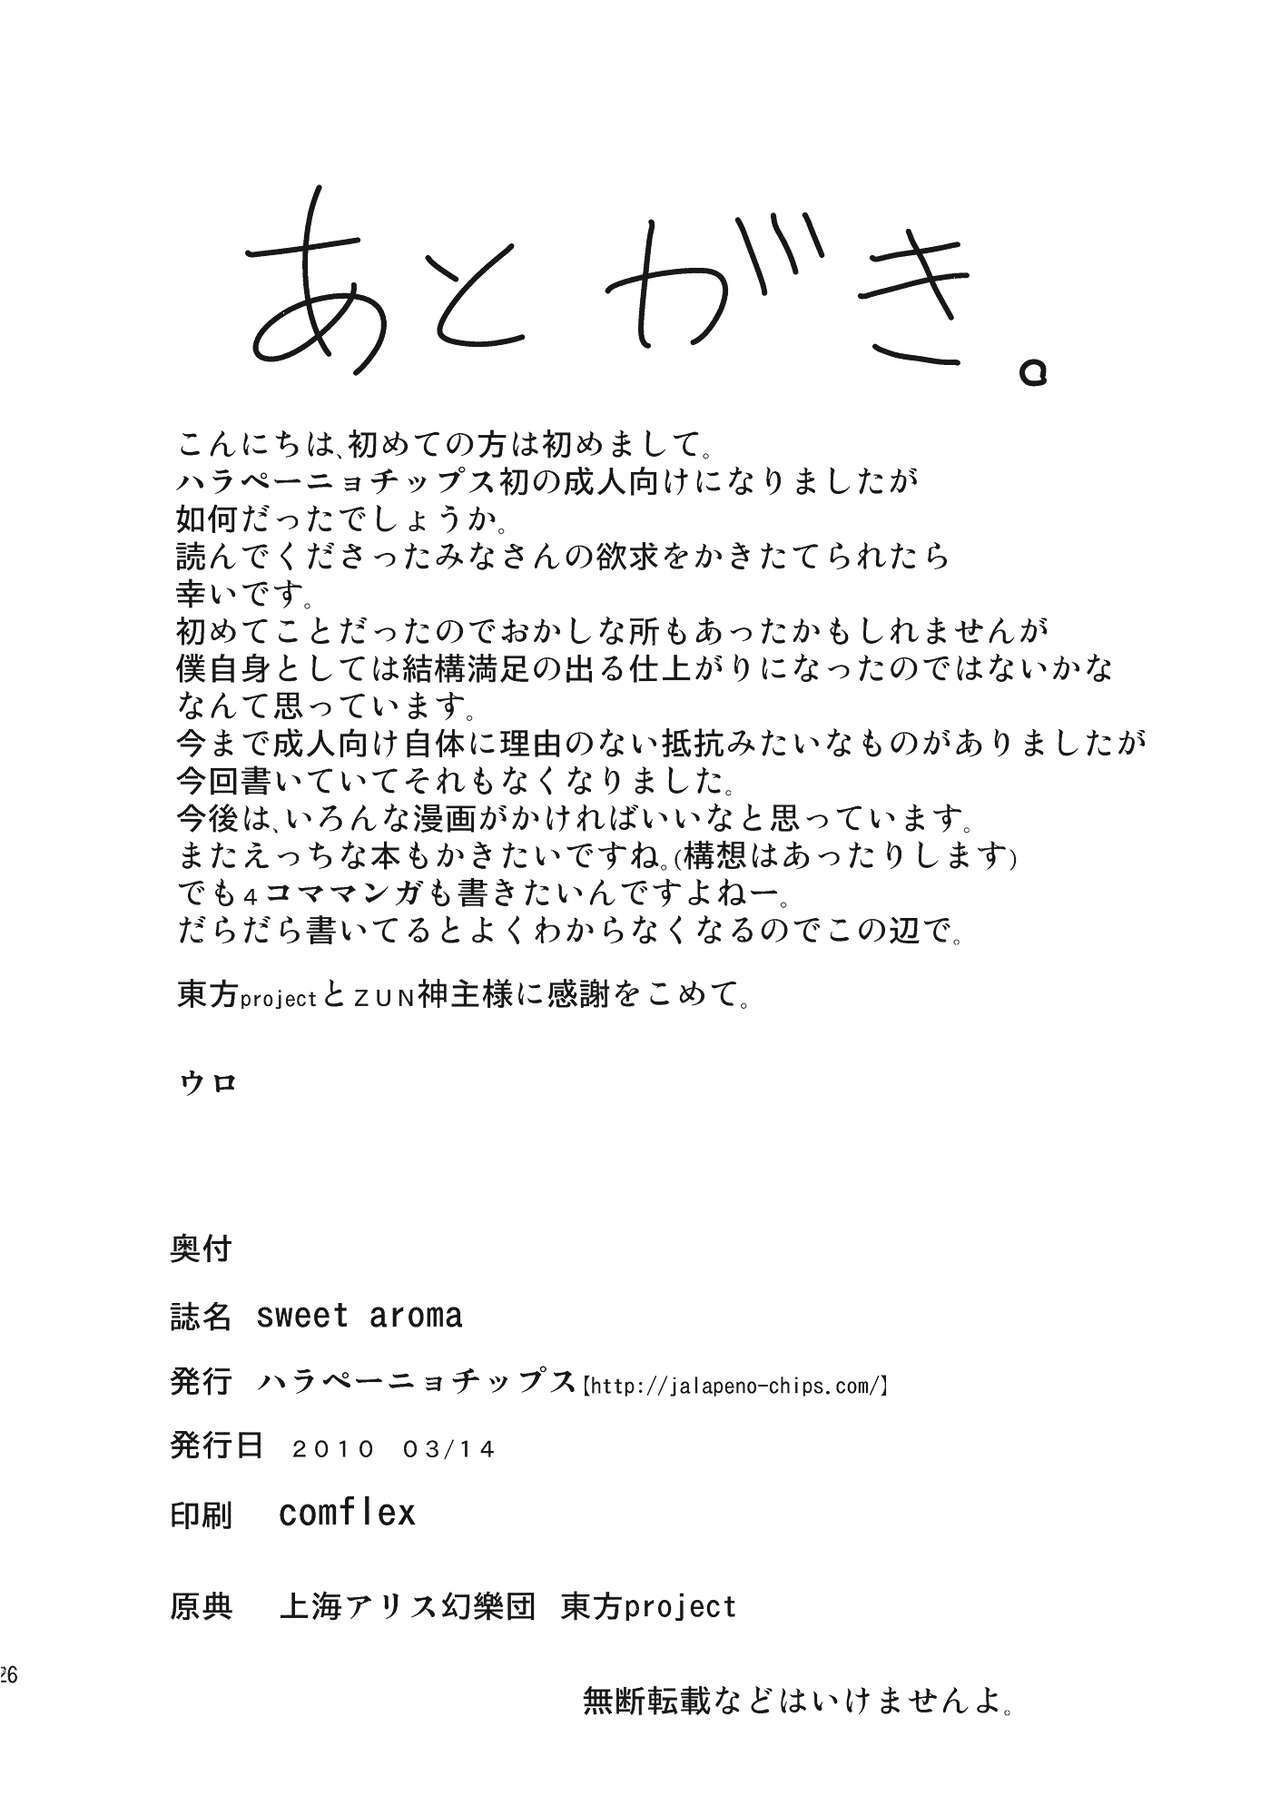 あとがき。
こんにちは、初めての方は初めまして。
ハラペーニョチップス初の成人向けになりましたが
如何だったでしょうか。
読んでくださったみなさんの欲求をかきたてられたら
幸いです。
初めてことだったのでおかしな所もあったかもしれませんが
僕自身としては結構満足の出る仕上がりになったのではないかな
なんて思っています。
今まで成人向け自体に理由のない抵抗みたいなものがありましたが
今回書いていてそれもなくなりました。
今後は、いろんな漫画がかければいいなと思っています。
またえっちな本もかきたいですね。(構想はあったりします)
でも4コママンガも書きたいんですよねー。
だらだら書いてるとよくわからなくなるのでこの辺で。
東方projectとZUN神主様に感謝をこめて。
ウロ
奥付
誌名 sweet aroma
発行 ハラペーニョチップス【http://jalapeno-chips.com/】
発行日 2010 03/14
印刷 comflex
原典 上海アリス幻樂団 東方project
26
無断転載などはいけませんよ。